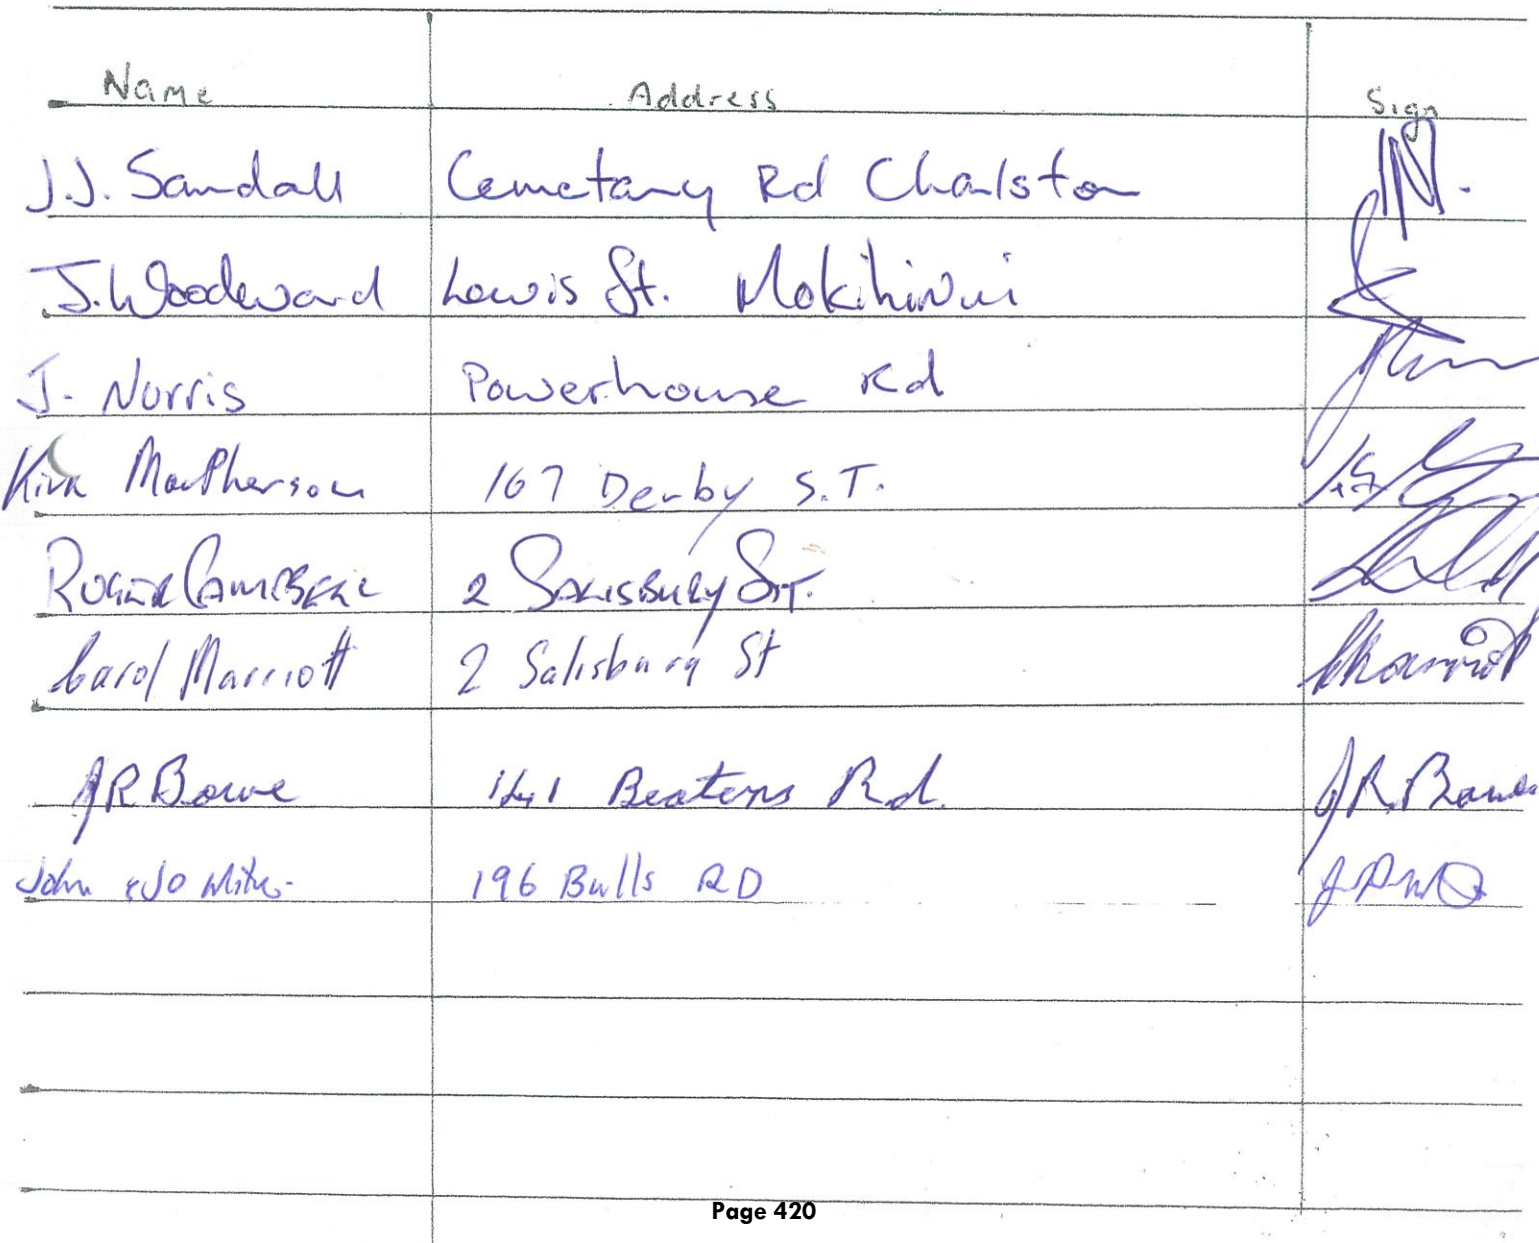 Name Address Sign
J.J. Sandall Cemetary Rd Charlston
J. Woodward Lewis St. Mokihinui
J. Norris Powerhouse Rd
Kirk MacPherson 167 Derby S.T.
ROGER CAMPBELL 2 SALISBURY ST.
Carol Marriott 2 Salisbury St
JR Bowe 141 Beatens Rd. J R. Bowe
John & Jo 196 Bulls RD
Page 420